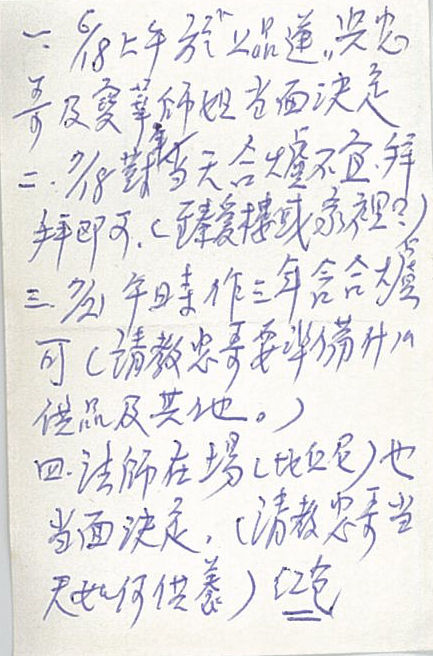 一. 6/18上午於"上品蓮",與忠
哥及雯華師姐當面決定
二. 7/18對年當天合爐不宜.拜
拜即可.(臻愛樓或家裡?)
三. 7/21午時作三年合合爐
可(請教忠哥要準備什么
供品及其他。)
四.法師在場(比丘尼)也
當面決定.(請教忠哥當
天如何供養)紅包